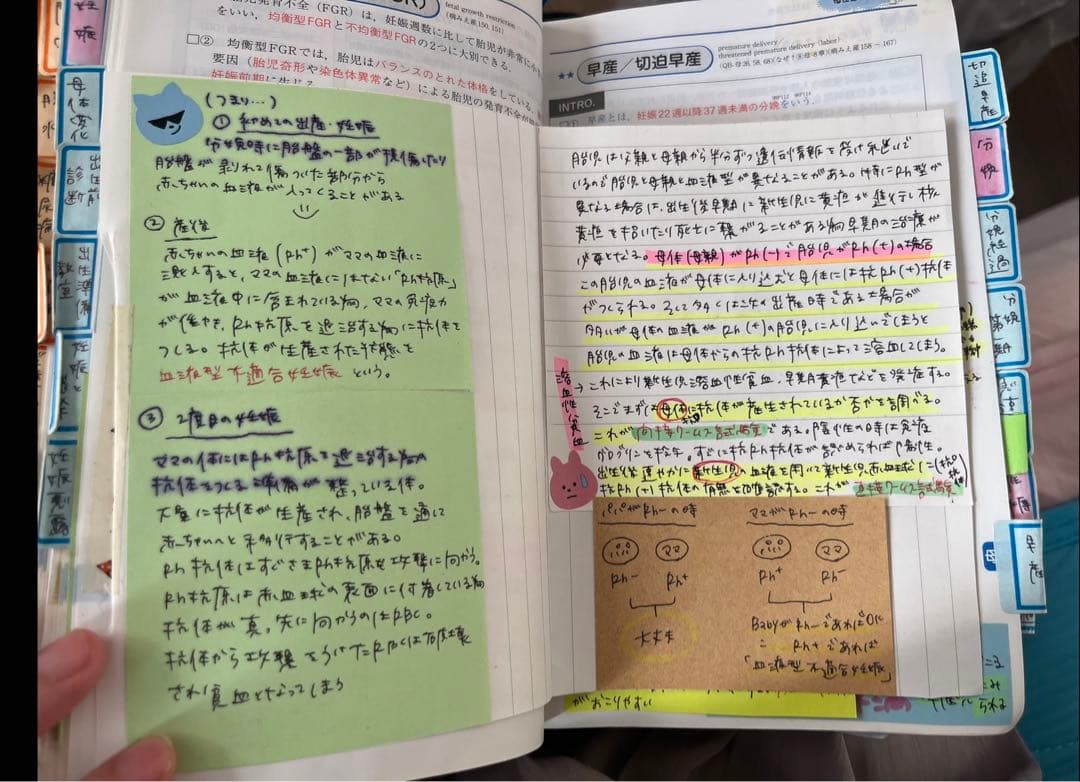 発育不全（FGR）は、妊娠週数に比して胎児が非常に小
をいい、均衡型FGRと不均衡型FGRの2つに大別できる。
fetal growth restriction
(病みえ産150, 151)
□② 均衡型FGRでは、胎児はバランスのとれた体格をしている。
要因（胎児奇形や染色体異常など）による胎児の発育不全が
妊娠前期に生じる
(つまり…)
① 初めての出産・妊娠
分娩時に胎盤の一部が損傷したり
胎盤が剥れて傷ついた部分から
赤ちゃんの血液が入ってくることがある
② 産後
赤ちゃんの血液(Rh+)がママの血液に
混入すると、ママの血液にはない「Rh抗原」
が血液中に含まれている為、ママの免疫力
が働き、Rh抗原を退治する為に抗体を
つくる。抗体が生産された状態を
血液型不適合妊娠という。
③ 2度目の妊娠
ママの体にはRh抗原を退治する為
抗体をつくる準備が整っている体。
大量に抗体が生産され、胎盤を通して
赤ちゃんへと移行することがある。
Rh抗体はすぐさまRh抗原を攻撃に向かう。
Rh抗原は赤血球の表面に付着している為
抗体が真っ先に向かうのはRBC。
抗体から攻撃をうけたRBCは破壊
され貧血となってしまう
★★ 早産／切迫早産
premature delivery/
threatened premature delivery (labor)
INTRO.
早産とは、妊娠22週以降37週未満の分娩をいう。
胎児は父親と母親から半分ずつ遺伝情報を受け継いで
いるので胎児と母親と血液型が異なることがある。特にRh型が
異なる場合は、出生後早期に新生児に黄疸が進行し核
黄疸を招いたり死亡に繋がることがある為早期の治療が
必要となる。母体(母親)がRh(-)で胎児がRh(+)の場合
この胎児の血液が母体に入り込むと母体には抗Rh(+)抗体
がつくられる。そして多くは次の出産時である場合が
多いが母体の血液がRh(+)の胎児に入り込いでしまうと
胎児の血液は母体からの抗Rh抗体によって溶血してしまう。
→これにより新生児溶血性貧血、早期黄疸などを発症する。
溶血性貧血
そこでまずは母体に抗体が産生されているか否かを調べる。
これが間接クームス試験である。陰性の時は免疫
グロブリンを投与。すでに抗Rh抗体が認められれば陽性。
出生後速やかに新生児の血液を用いて新生児赤血球に
抗Rh(+)抗体の有無を確認する。これが直接クームス試験
パパがRh-の時
ママがRh-の時
ママ
ママ
Rh- Rh+
Rh+ Rh-
大丈夫
BabyがRh-であればOK
〃 Rh+であれば
「血液型不適合妊娠」
がおこりやすい
妊娠
母体変化
出生前診断
出生準備教室
切迫早産
分娩
分娩経過
早産